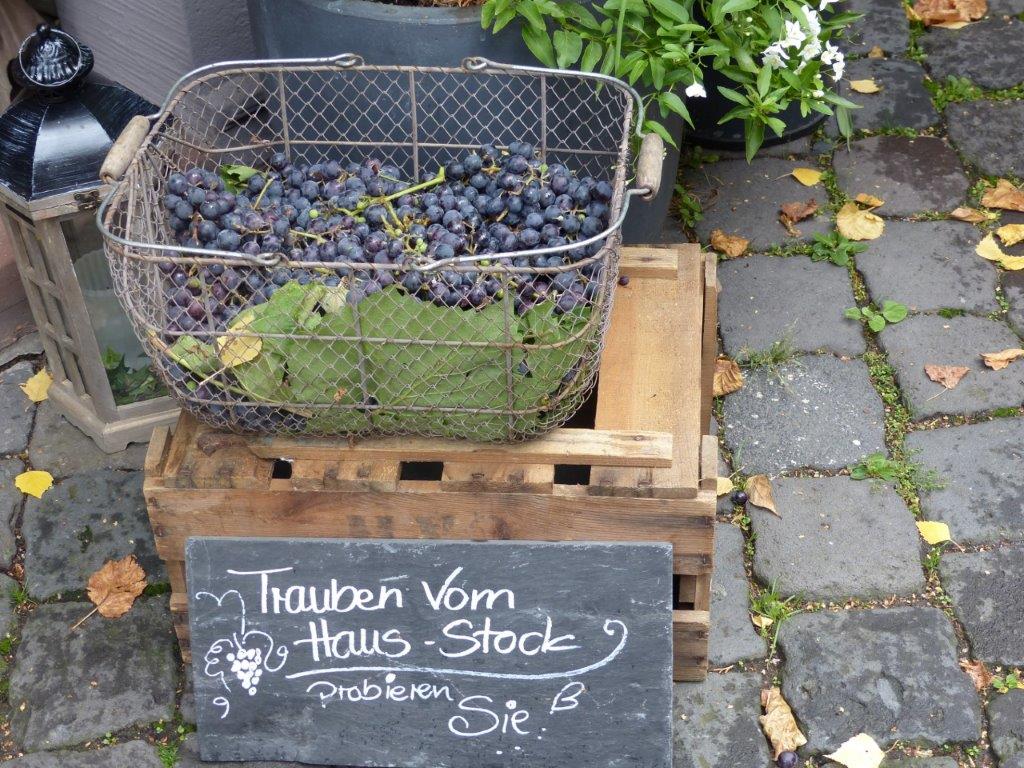 Trauben Vom
Haus-Stock
probieren
Sie